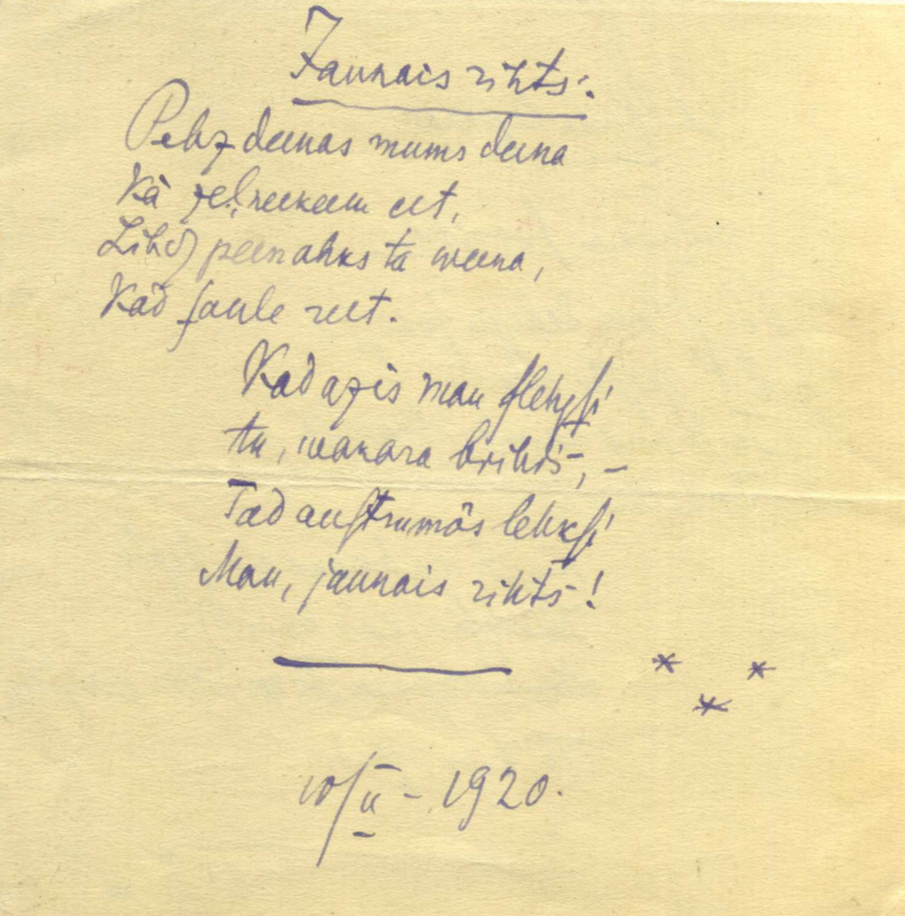 Jaunais rihts.
Pehz deenas mums deena
Kà zeļneekeem eet,
Lihds peenahks ta weena,
Kad ſaule reet.
Kad azis man ſlehgſi
tu, wakara brihdis, –
Tad auſtrumôs lehkſi
Man, jaunais rihts!
* *
*
10/II – 1920.